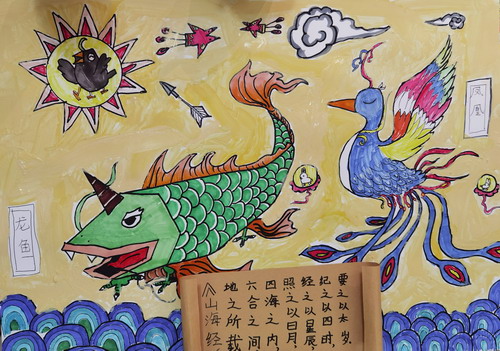 龙鱼
凤凰
《山海经
地之所载
六合之间
四海之内,
照之以日月,
经之以星辰
纪之以四时,
要之以太岁